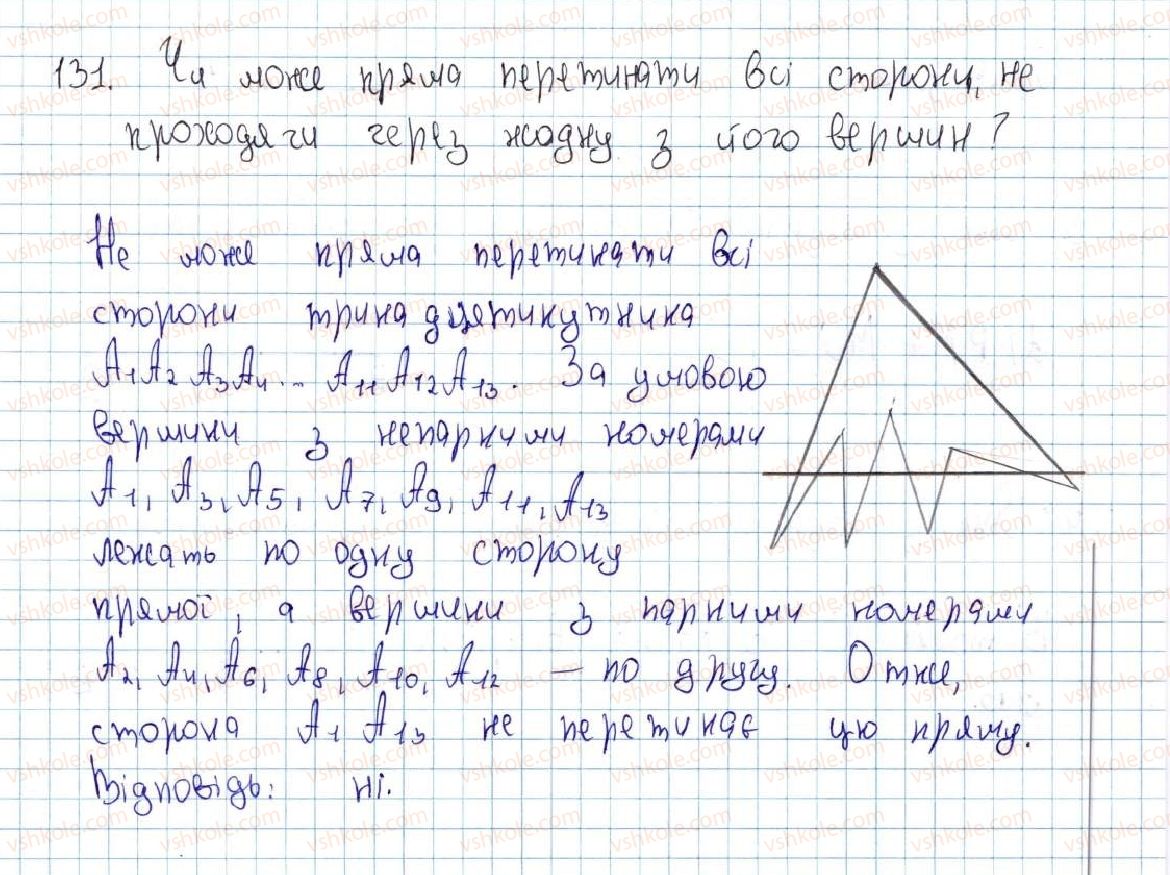 131. Чи може пряма перетинати всі сторони, не
проходячи через жадну з його вершин?
Не може пряма перетинати всі
сторони тринадцятикутника
A₁A₂A₃A₄... A₁₁A₁₂A₁₃. За умовою
вершини з непарними номерами
A₁, A₃, A₅, A₇, A₉, A₁₁, A₁₃
лежать по одну сторону
прямої, а вершини з парними номерами
A₂, A₄, A₆, A₈, A₁₀, A₁₂ – по другу. Отже,
сторона A₁A₁₃ не перетинає цю пряму.
Відповідь: ні.